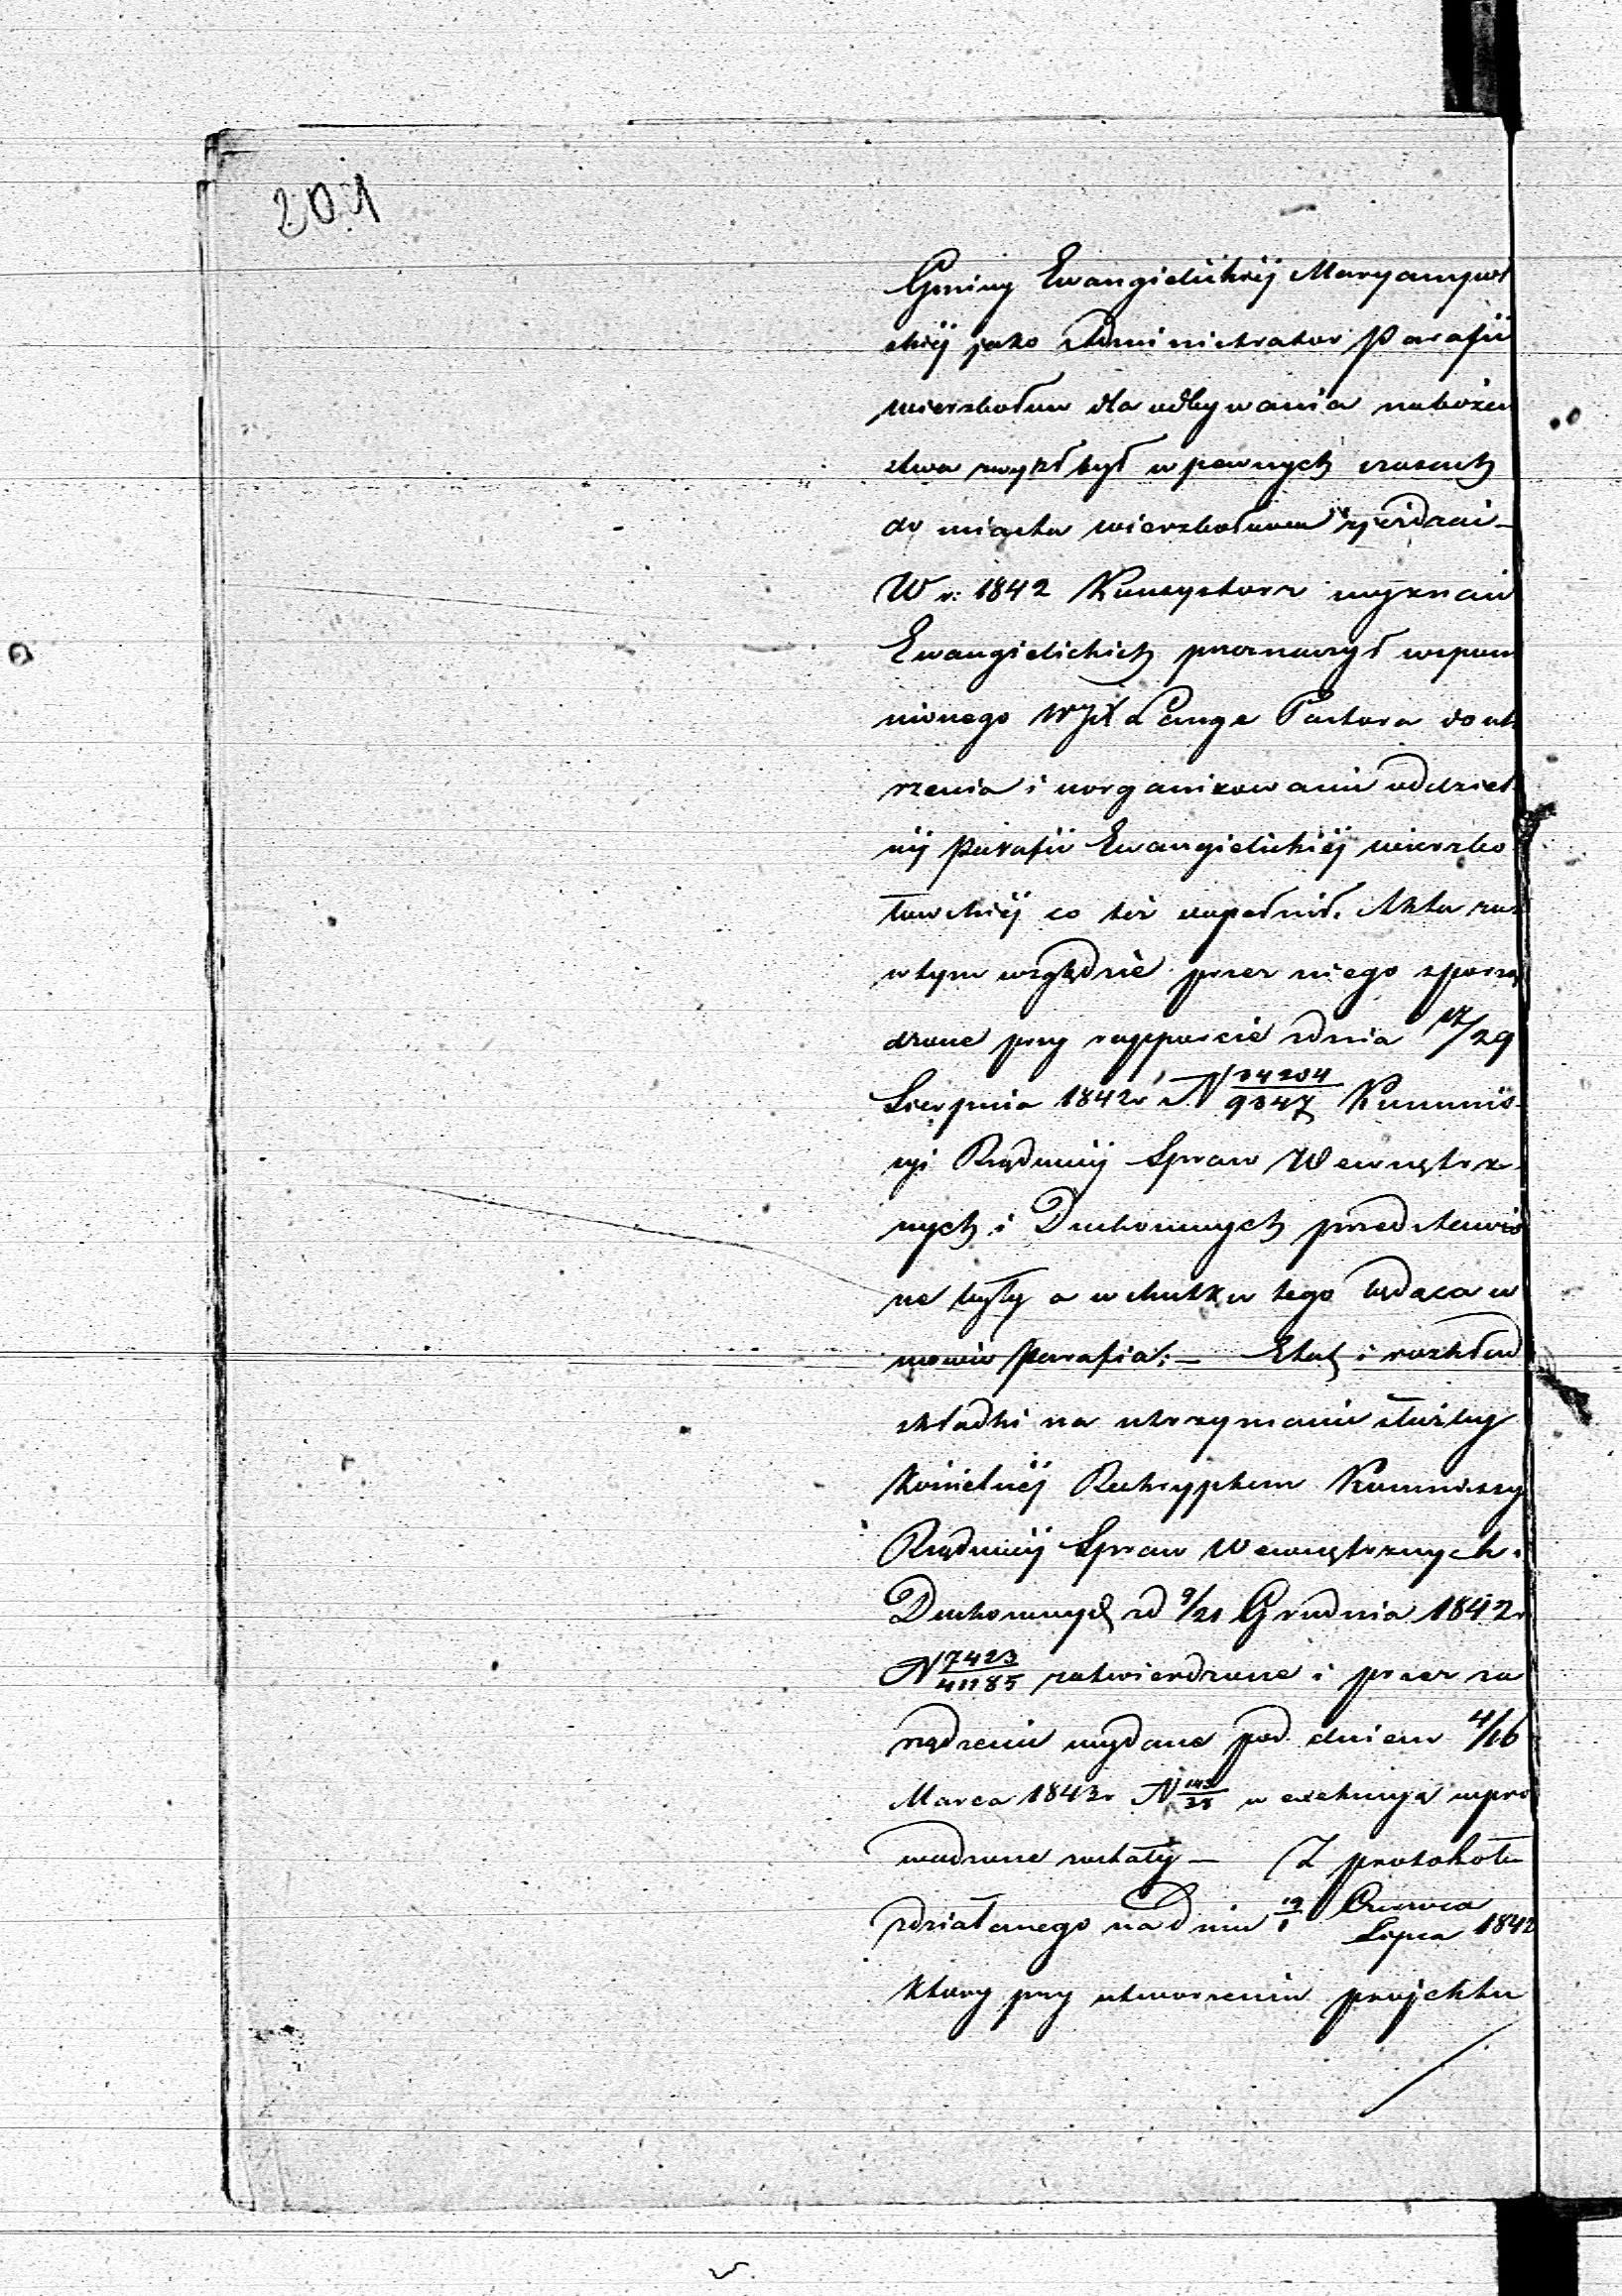 201
Gminy Ewangielickiéj Maryampol
skiéj jako Administrator Parafii
Wierzbołow dla odbywania nabożeń
stwa zwykł był w pewnych czasach
do miasta Wierzbołowa zjeżdżać —
W r: 1842 Konsystorz wyznań
Ewangielickich przeznaczył wspom
nionego WJX Lange Pastora do utw
rzenia i uorganizowania oddziel
néj Parafii Ewangielickiéj Wierzbo
łowskiéj co też dopełnił. Akta zaś
w tym względzie przez niego sporzą
dzone przy rapporcie z dnia 17/29
Sierpnia 1842 r N 24204/9347 Kommis
syi Rządowéj Spraw Wewnętrz
nych i Duchownych przedstawio
ne były a w skutku tego będąca w
mowie Parafia; — Etat i rozkład
składki na utrzymanie służby
Kościelnéj Reskryptem Kommissyi
Rządowéj Spraw Wewnętrznych i
Duchownych z d 9/21 Grudnia 1842 r
N 7423/41185 zatwierdzone i przez za
rządzenie wydane pod dniem 4/16
Marca 1843 r N w exekucyą wpro
wadzone zostały — Z protokółu
zdziałanego na dniu 19/1 Czerwca/Lipca 1842
który przy utworzeniu projektu